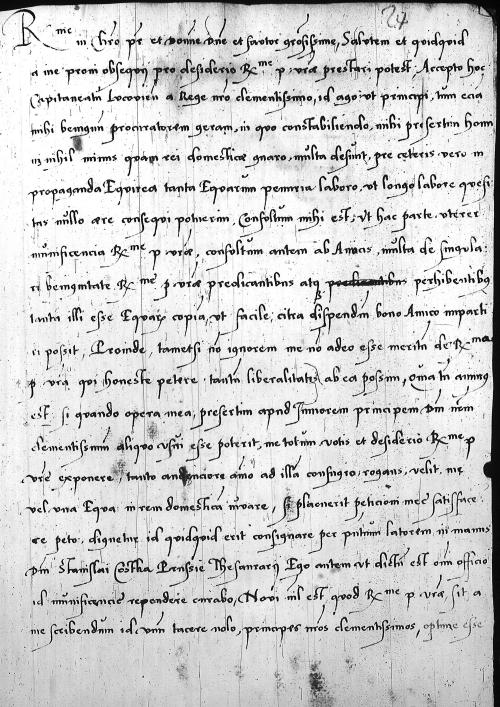 24
R me in Chro pr et Domine dne et fautor grosissime, Salutem et quidquid
a me proni obsequij pro desiderio R me p. vrae prestari potest. Accepto hoc
Capitaneatu Locovien a Rege nro clementissimo, id ago, ut principi, tum ecia
mihi benignum procuratorem geram, in quo constabiliendo, mihi presertim homi
in nihil minus quam rei domesticae gnaro, multa desunt, pre ceteris vero in
propaganda Equirea tanta Equarum penuria laboro, ut longo labore quesi
tas nullo aere consequi potuerim, Consultum mihi est, ut hac parte uterer
munificencia R me p vrae, consultum autem ab Amicis, multa de singula
ri benignitate R me p vrae predicantibus atq perhibentibus
tanta illi esse Equarum copia, ut facile, citra dispendium bono Amico imparti
ri possit, Proinde, tametsi no ignorem me no adeo esse meritu de R ma
p. vra qui honeste petere tanta liberalitate ab ea possim, animus
est si quando opera mea, presertim apud Iuniorem principem Dm nrm
clementissimum aliquo usui esse poterit, me totum votis et desiderio R me p
vre exponere, tanto audenciore animo ad illa confugio, rogans, velit me
vel una Equa in rem domestica iuvare, Si placuerit peticioni mee satisface
re peto, dignetur id quidquid erit consignare per pntium latorem in manus
Dni Stanislai Costka Prussie Thesaurarij Ego autem ut dictum est omi officio
id munificencie rependere curabo, Novi nil est quod R me p vrae, sit a
me scribendum id unum tacere nolo, principes nros clementissimos, optime esse